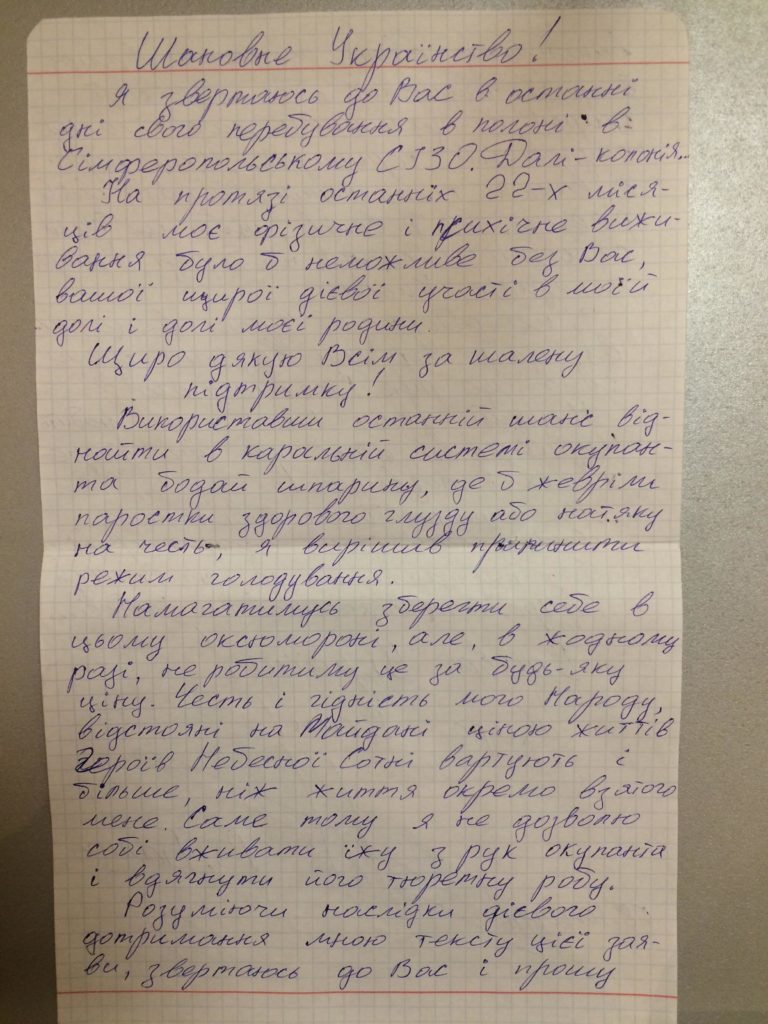 Шановне Українство!
Я звертаюсь до Вас в останні
дні свого перебування в полоні в
Сімферопольському СІЗО. Далі - колонія...
На протязі останніх 22-х міся-
ців моє фізичне і психічне вижи-
вання було б неможливе без Вас,
вашої щирої дієвої участі в моїй
долі і долі моєї родини.
Щиро дякую Всім за шалену
підтримку!
Використавши останній шанс від-
найти в каральній системі окупан-
та бодай шпарину, де б жевріли
паростки здорового глузду або натяку
на честь, я вирішив припинити
режим голодування.
Намагатимусь зберегти себе в
цьому оксюмороні, але, в жодному
разі, не робитиму це за будь-яку
ціну. Честь і гідність мого Народу,
відстояні на Майдані ціною життів
Героїв Небесної Сотні вартують і
більше, ніж життя окремо взятого
мене. Саме тому я не дозволю
собі вживати їжу з рук окупанта
і вдягнути його тюремну робу.
Розуміючи наслідки дієвого
дотримання мною тексту цієї зая-
ви, звертаюсь до Вас і прошу